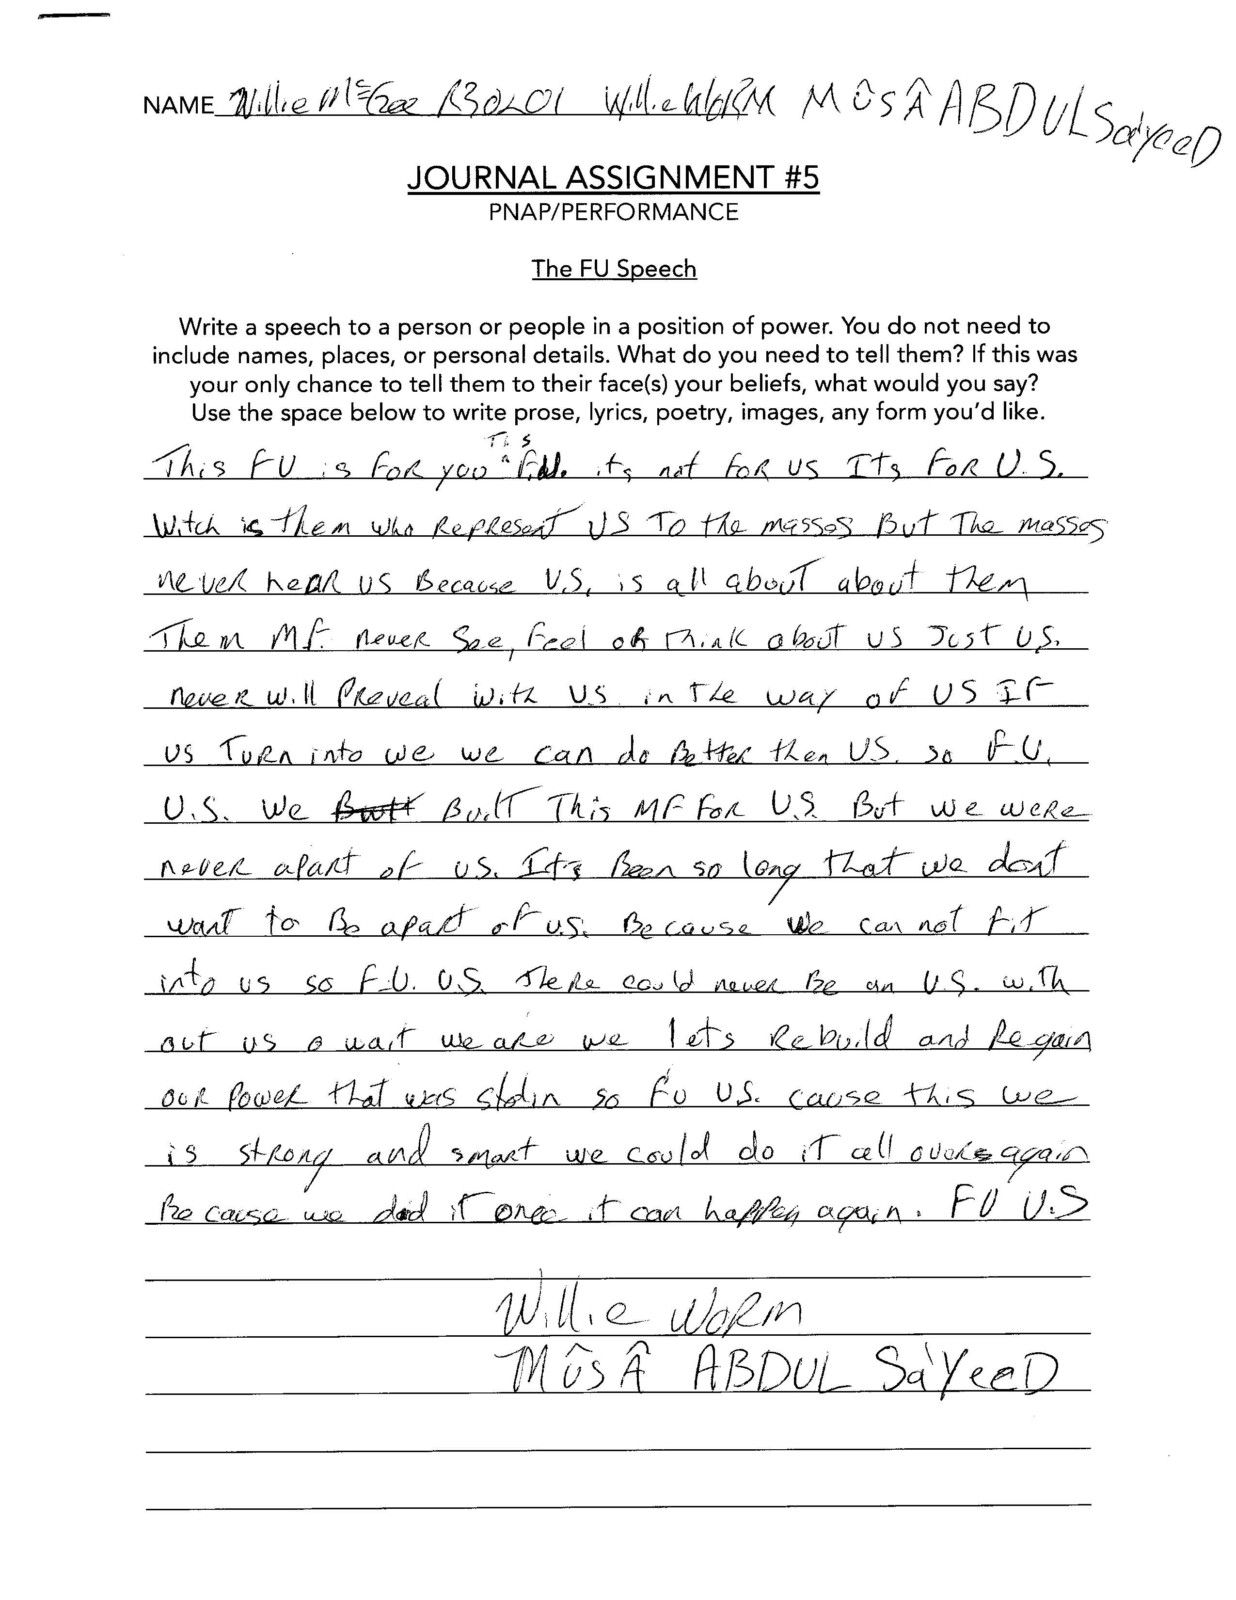 NAME Willie McGee R30201 Willie WORM MÛSÂ ABDUL Sa'yeeD
JOURNAL ASSIGNMENT #5
PNAP/PERFORMANCE
The FU Speech
Write a speech to a person or people in a position of power. You do not need to
include names, places, or personal details. What do you need to tell them? If this was
your only chance to tell them to their face(s) your beliefs, what would you say?
Use the space below to write prose, lyrics, poetry, images, any form you'd like.
This
This FU is For you its not FOR US ITs FOR U.S.
Witch is them who Represent US TO the masses But The masses
never hear us Because U.S. is all about about them
Them MF. never See, Feel or Think about us Just U.S.
never will Preveal with U.S. in The way of US IF
us Turn into we we can do Better then US. so F.U.
U.S. We Built This MF FOR U.S. But we were
never apart of U.S. It's Been so long that we dont
want to Be apart of U.S. Because we can not fit
into us so F.U. U.S. There could never Be an U.S. with
out us o wait we are we lets Rebuild and Regain
our Power that was stolin so FU U.S. cause this we
is strong and smart we could do it all over again
Because we did it once it can happen again. FU U.S
Willie WORM
MÛSÂ ABDUL Sa'YeeD